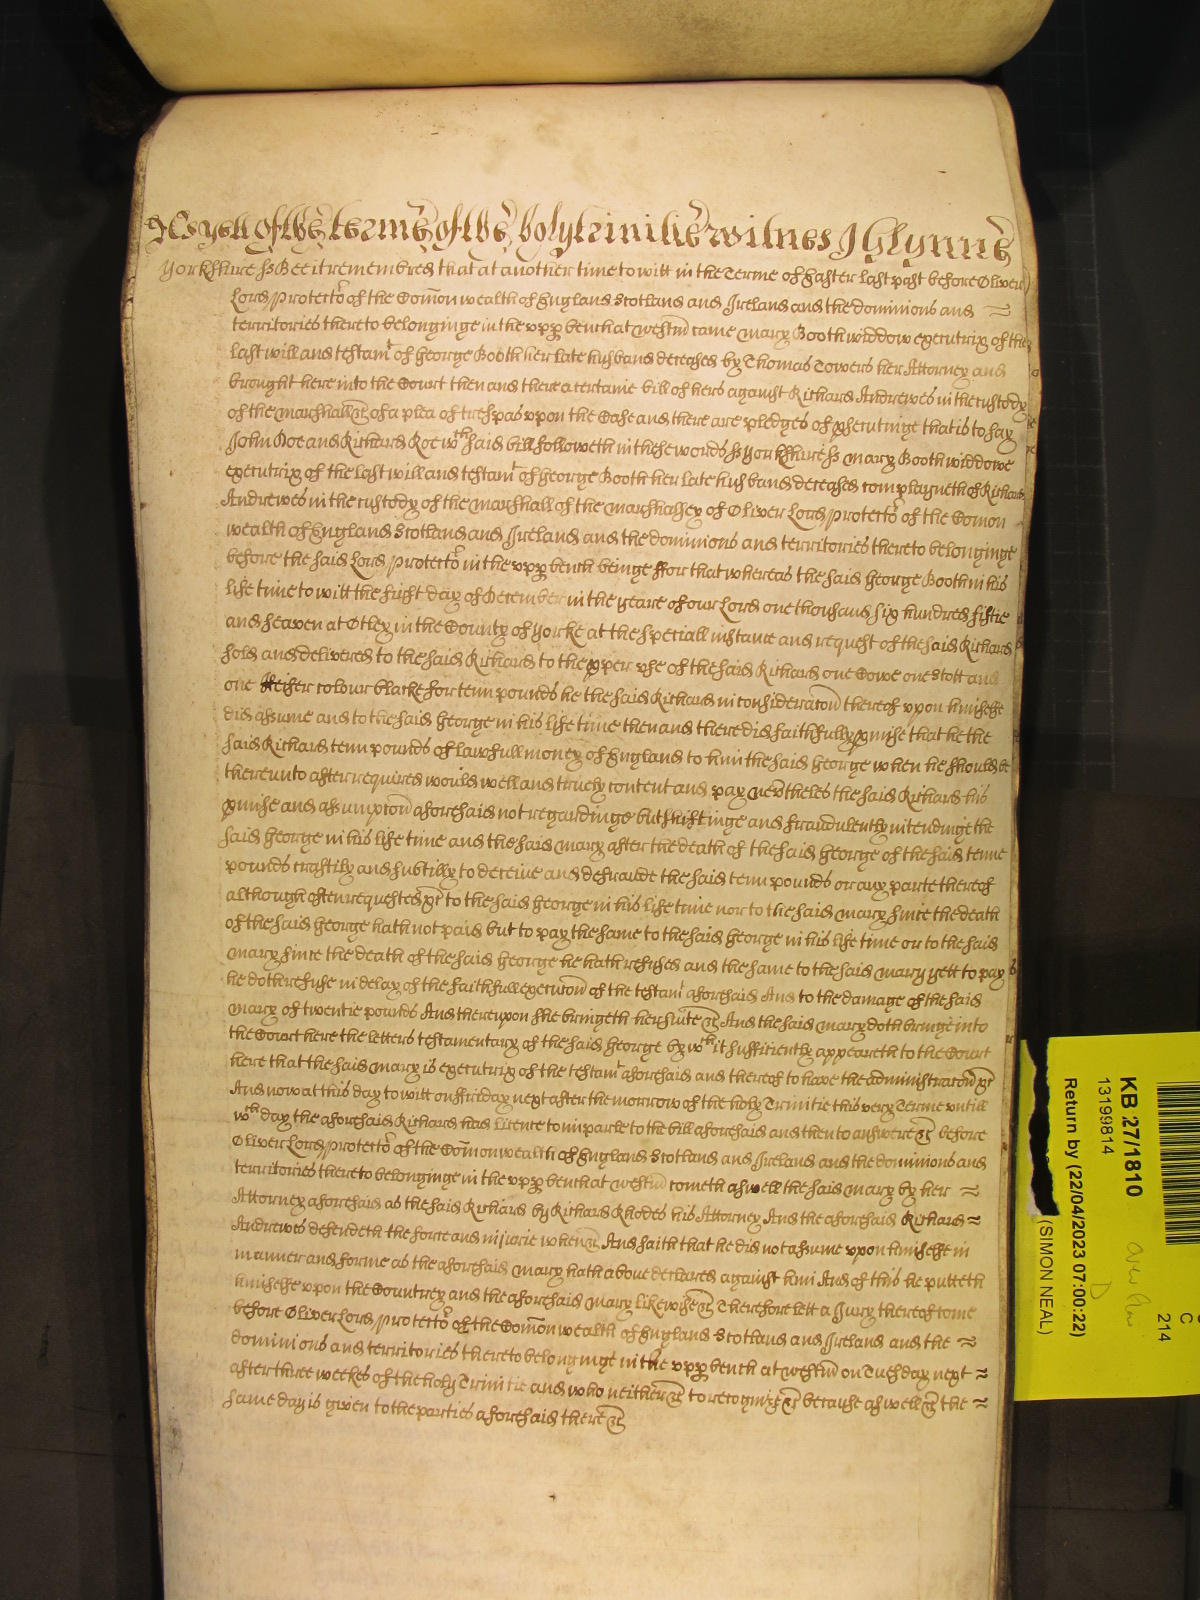 As yett of the terme of the holy trinitie witnes J Glynne
Yorkshire ss Bee it remembred that at another time to witt in the Terme of Easter last past before Oliver
Lord Protector of the Com̄on wealth of England Scotland and Ireland and the dominions and
territories thereto belonginge in the vpp bench at westm̄ came Mary Booth widdow executrix of the
last will and testamt of George Booth her late husband deceased by Thomas Towers her Attorney and
brought here into the Court then and there a certaine bill of hers against Richard Andrewes in the custody
of the marshall &c of a plea of trespas vpon the Case and there are pledges of psecutinge that is to say
John Doe and Richard Roe wch said bill followeth in these words ss Yorkshire ss Mary Booth widdowe
executrix of the last will and testamt of George Booth her late husband deceased complayneth of Richard
Andrewes in the custody of the marshall of the marshalsey of Oliver Lord Protector of the Com̄on
wealth of England Scotland and Ireland and the dominions and territories thereto belonginge
before the said Lord Protector in the vpp bench beinge ffor that whereas the said George Booth in his
life time to witt the first day of December in the yeare of our Lord one thousand six hundred fiftie
and seaven at Otley in the County of Yorke at the speciall instance and request of the said Richard
sold and delivered to the said Richard to the pper vse of the said Richard one Cowe one stott and
one heifer colour blacke for tenn pounds he the said Richard in consideracōn thereof vpon himselfe
did assume and to the said George in his life time then and there did faithfully pmise that he the
said Richard tenn pounds of lawfull money of England to him the said George when he should be
thereunto after required would well and truely content and pay nevertheles the said Richard his
pmise and assumptōn aforesaid not regardinge but shiftinge and fraudulently intendinge the
said George in his life time and the said Mary after the death of the said George of the said tenne
pounds craftily and subtilly to deceive and defraude the said tenn pounds or any parte thereof
although often requested &c to the said George in his life time nor to the said Mary since the death
of the said George hath not paid but to pay the same to the said George in his life time or to the said
Mary since the death of the said George he hath refused and the same to the said Mary yett to pay
he doth refuse in delay of the faithfull execucōn of the testamt aforesaid And to the damage of the said
Mary of twentie pounds And thereupon she bringeth her suite &c And the said Mary doth bringe into
the Court here the letters testamentary of the said George by wch it sufficiently appeareth to the Court
here that the said Mary is executrix of the testamt aforesaid and thereof to have the administracōn &c
And now at this day to witt on ffriday next after the morrow of the holy Trinitie this very Terme vntill
wch day the aforesaid Richard had licence to imparle to the bill aforesaid and then to answere &c before
Oliver Lord Protector of the Com̄on wealth of England Scotland and Ireland and the dominions and
territories thereto belonginge in the vpp bench at westm̄ cometh aswell the said Mary by her
Attorney aforesaid as the said Richard by Richard Rhodes his Attorney And the aforesaid Richard
Andrewes defendeth the force and iniurie when &c And saith that he did not assume vpon himselfe in
manner and forme as the aforesaid Mary hath above declared against him And of this he putteth
himselfe vpon the Countrey and the aforesaid Mary likewise &c Therefore lett a Jury thereof come
before Oliver Lord Protector of the Com̄on wealth of England Scotland and Ireland and the
dominions and territories thereto belonginge in the vpp bench at westm̄ on Tuesday next
after three weekes of the holy Trinitie and who neither &c to recognize &c because aswell &c the
same day is given to the parties aforesaid there &c
KB 27/1810
13199814
Return by (22/04/2023 07:00:22)
(SIMON NEAL)
C
214
D